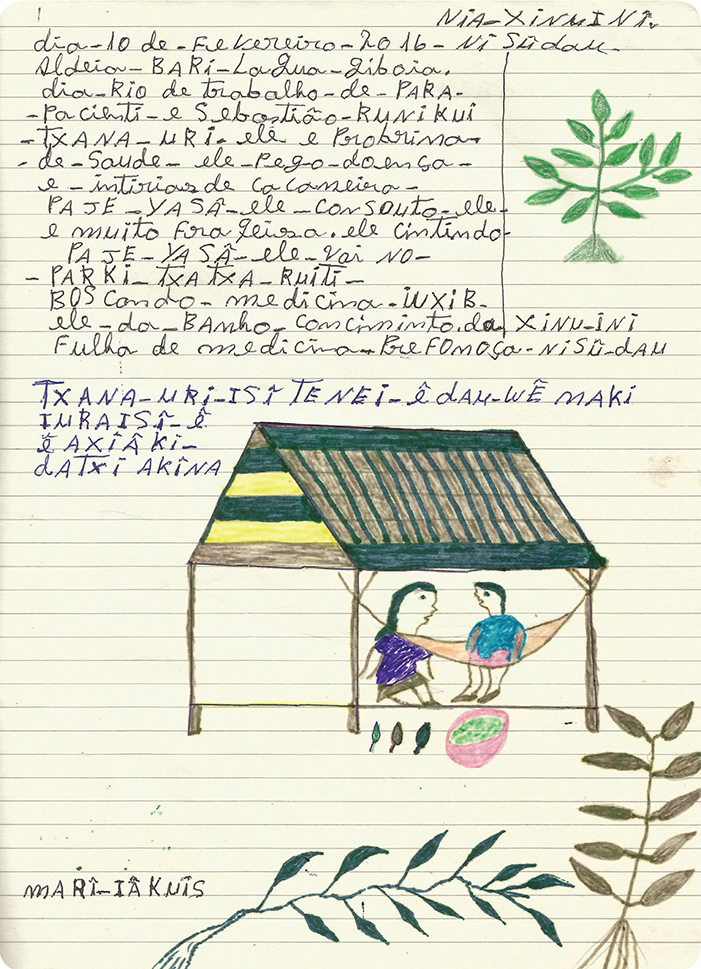 NIA-XINUMINI.
dia-10 de-Fevereiro-2016-Ni Sûdau-
Aldeia-BARI-Lagua-Jiboia.
dia-RIO de trabalho-de-PARA-
-Pacienti-e Sebastião-RUNIKUI
-TXANA-URI-ele e Probrima-
-de-Saude-ele-Pego-doença-
e-intirias de cacanseira-
PAJE-YASÃ-ele-Consouto-ele-
e muito Firageiza.ele cintindo-
PAJE-YASÃ-ele-Vai NO-
-PARKI-TXATXA-RUITI-
BOSCando-medicina-IUXIB-
ele-da-BANho-Conciminto.da XINU-INI
Fulha de medicina-PREFOMOÇA-NISÛ-dAU
TXANA-URI-ISÎ TENEI-Ê dAU-WÊ MAKI
IURAISÎ-Ê
Ê AXIÂKI-
dATXI AKINA
MARÎ-IÂKUÎS